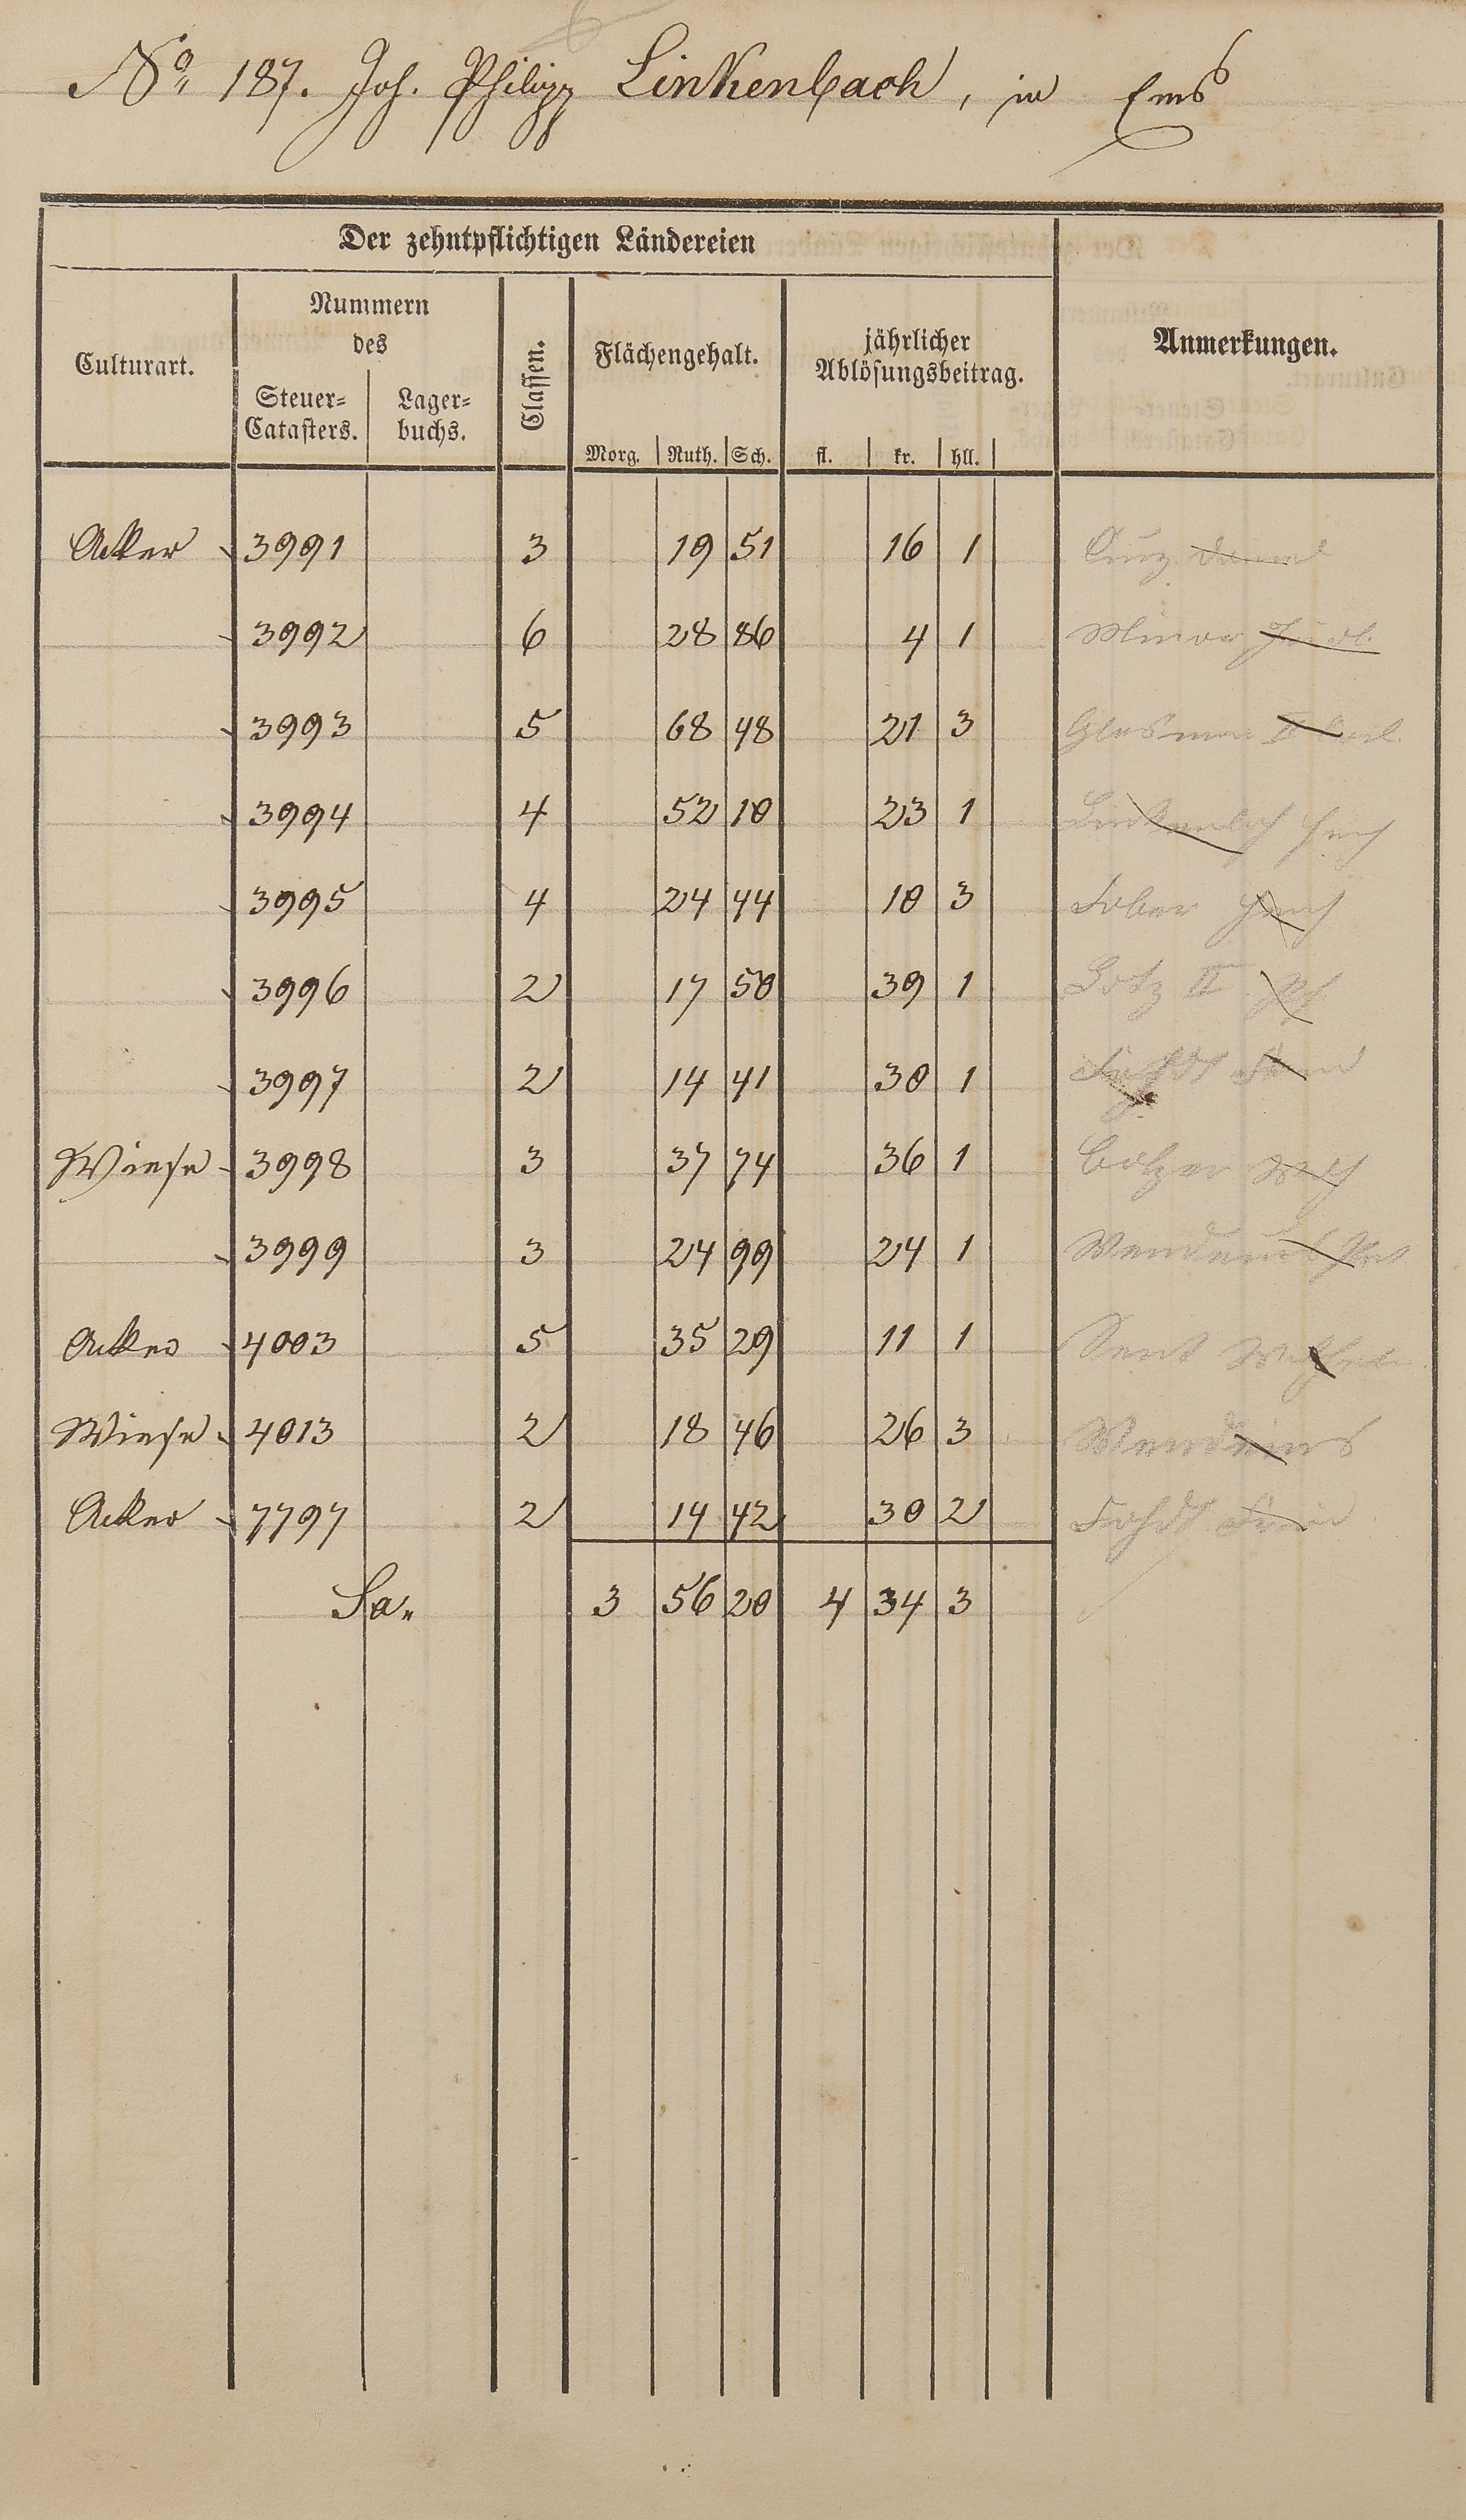 No. 187. Joh. Philipp Linkenbach, in Ems
Der zehntpflichtigen Ländereien
Culturart. Nummern des Classen. Flächengehalt. jährlicher Ablösungsbeitrag. Anmerkungen.
Steuer-Catasters. Lager-buchs.
Morg. Ruth. Sch. fl. kr. hll.
Acker 3991 3 19 51 16 1
3992 6 28 86 4 1 Minor
3993 5 68 48 21 3
3994 4 52 10 23 1 Linkenbch
3995 4 24 44 10 3 Faber
3996 2 17 50 39 1 Lotz II
3997 2 14 41 30 1
Wiese 3998 3 37 74 36 1
3999 3 24 99 24 1
Acker 4003 5 35 29 11 1
Wiese 4013 2 18 46 26 3
Acker 7797 2 14 42 30 2
Sa. 3 56 20 4 34 3